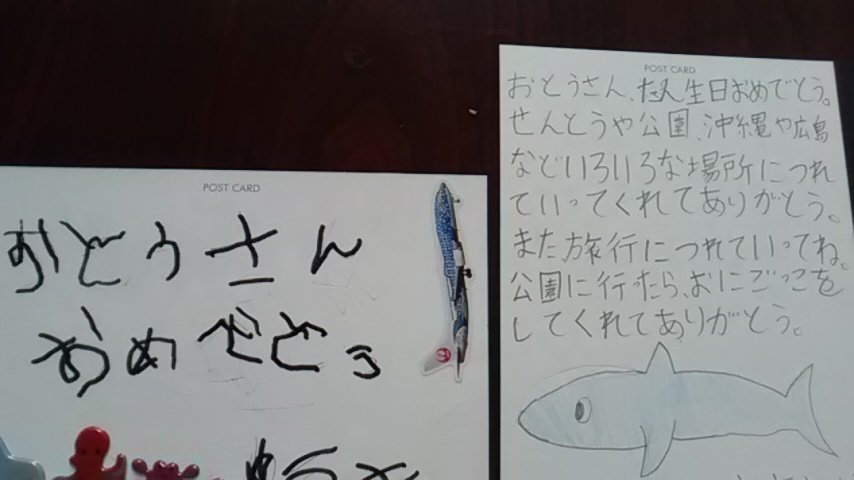 POST CARD
おとうさん
おめでとう
POST CARD
おとうさん、たん生日おめでとう。
せんとうや公園、沖縄や広島
などいろいろな場所につれ
ていってくれてありがとう。
また旅行につれていってね。
公園に行ったら、おにごっこを
してくれてありがとう。